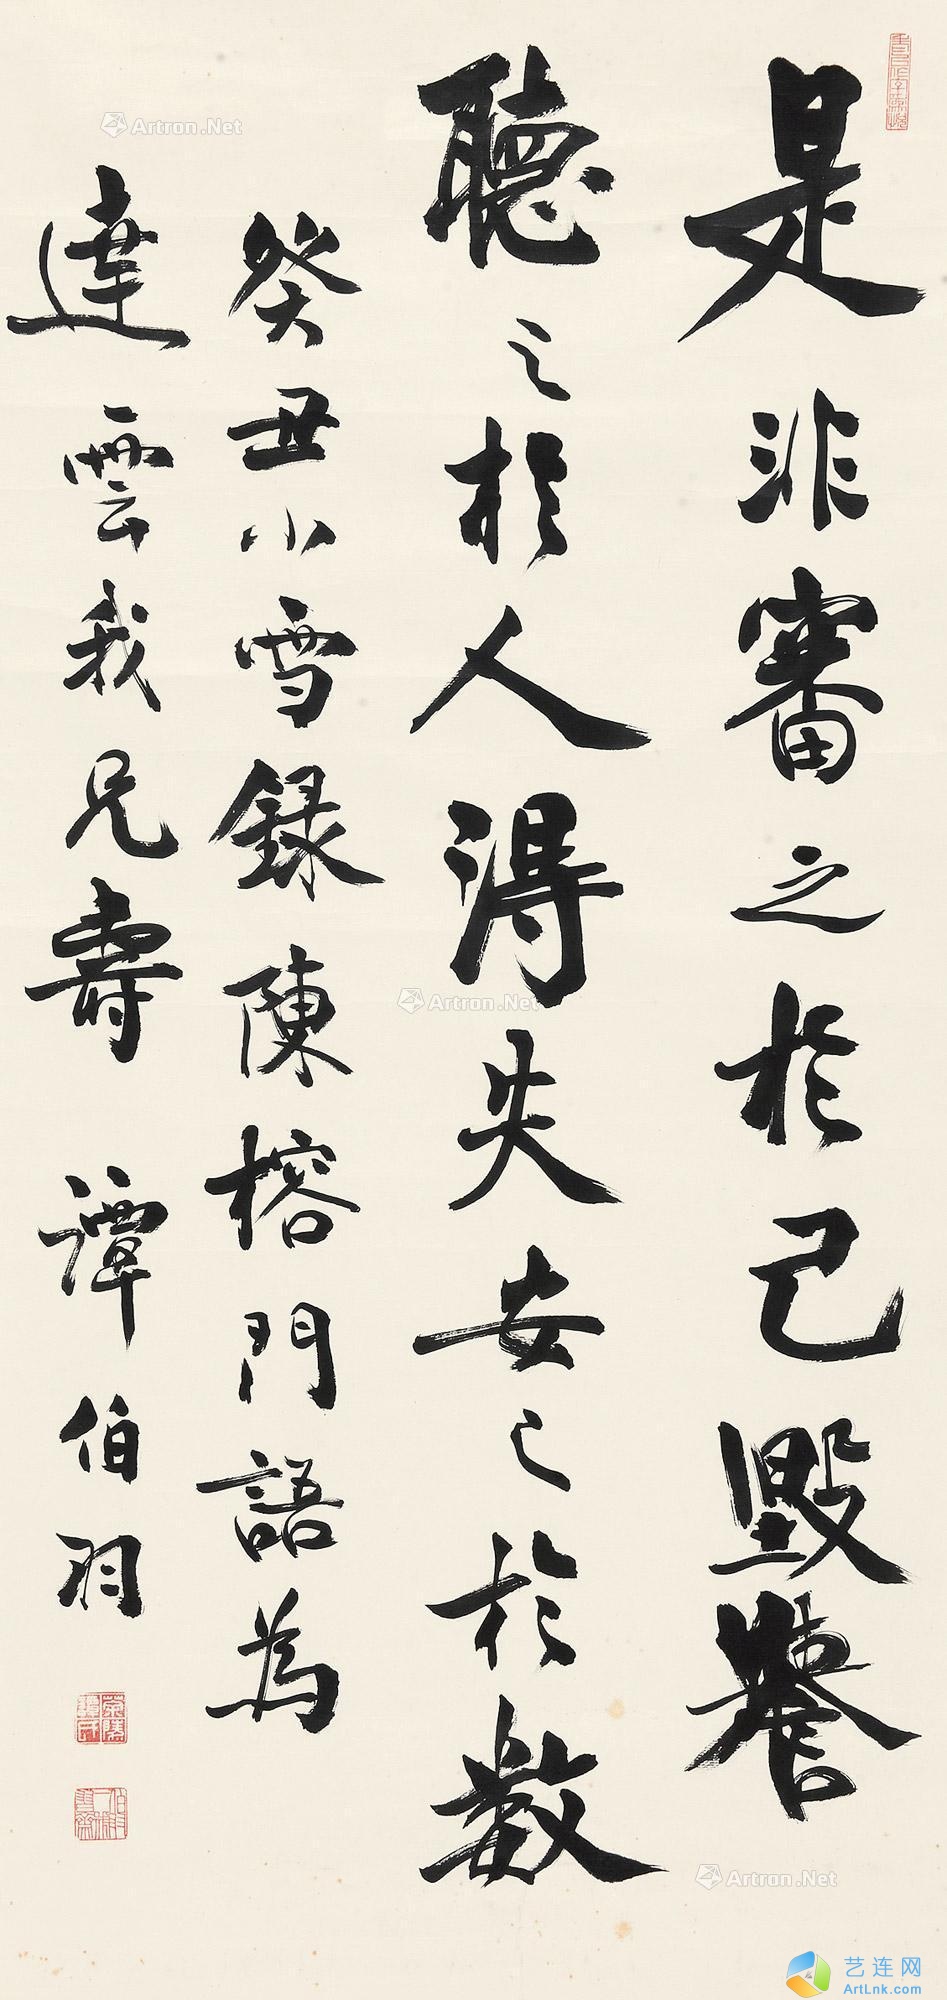 是非審之於己毀譽
聽之於人得失安之於數
癸丑小雪録陳榕門語為
達雲我兄壽 譚伯羽
Artron.Net
Artron.Net
Artron.Net
艺连网
ArtLnk.com